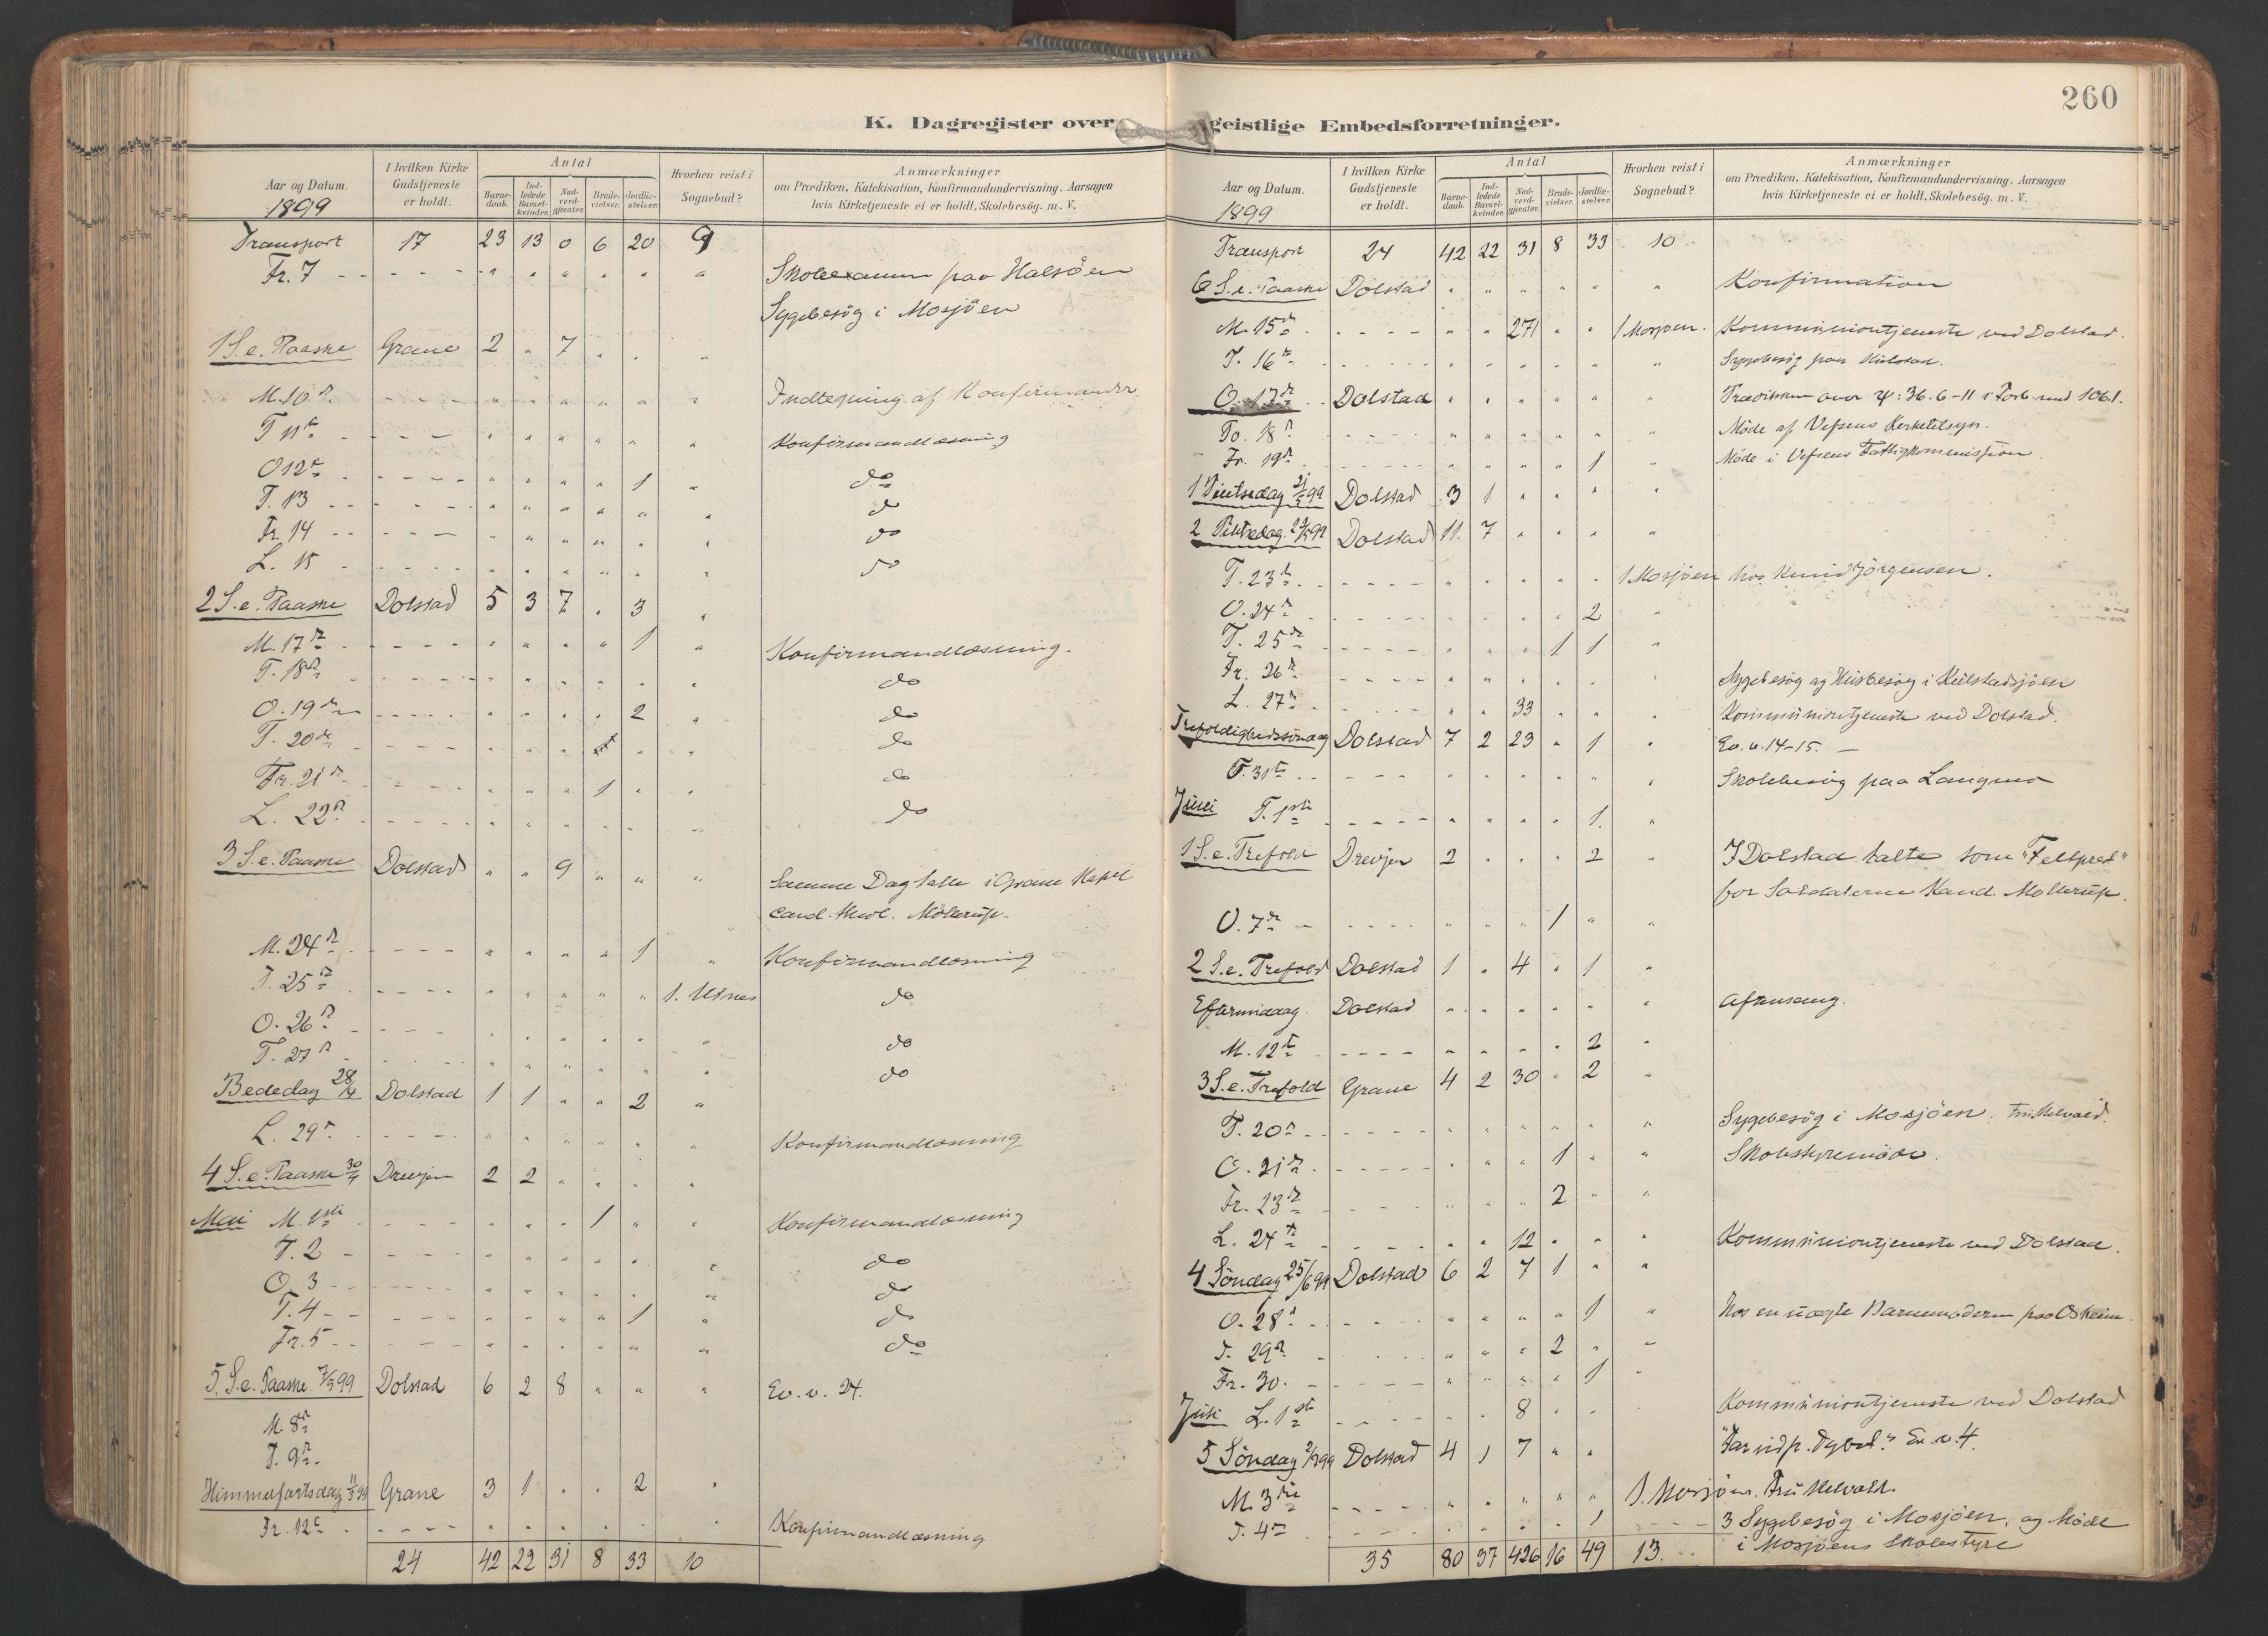 260
K. Dagregister over geistlige Embedsforretninger.
Aar og Datum. I hvilken Kirke Gudstjeneste er holdt. Antal Barnedaab. Indledede Barselkvinder. Nadverdgjester. Brudevielser. Jordfæstelser. Hvorhen reist i Sognebud? Anmærkninger om Prædiken, Katekisation, Konfirmandundervisning. Aarsagen hvis Kirketjeneste ei er holdt, Skolebesög. m. V.
1899
Transport 17 23 13 0 6 20 9
Fr. 7 - - - - - - " " " " " " Skoleexamen paa Halsöen
Sygebesög i Mosjöen
1 S. e. Paaske Grane 2 " 7 " " "
M. 10d. - - - - " " " " " " Indtegning af Konfirmander
T 11te - - - - " " " " " " Konfirmandlæsning
O 12te - - - - " " " " 1 " do
T. 13 - - - - - " " " " " " do
Fr. 14 - - - - - " " " " " " do
L. 15 - - - - - " " " " " " do
2 S. e. Paaske Dolstad 5 3 7 " 3 "
M. 17de - - - - " " " " 1 " Konfirmandlæsning.
T. 18de - - - - " " " " " " do
O. 19de - - - - " " " " 2 " do
T. 20de - - - - " " " " " do
Fr. 21de - - - - " " " 1 " " do
L. 22d. - - - - " " " " " " do
3 S. e. Paaske Dolstad " " 9 " " " Samme Dag talte i Grane Kapel
cand. theol. Mollerup.
M. 24d - - - - " " " " 1 " Konfirmandlæsning
T. 25d - - - - " " " " " 1. Utnes do
O. 26d. - - - - " " " " " " do
T. 27d - - - - " " " " " " do
Bededag 28/4 Dolstad 1 1 " " 2 "
L. 29d. - - - - " " " " " " Konfirmandlæsning
4 S. e. Paaske 30/4 Drevjen 2 2 " " " "
Mai M. 1ste - - - - " " " 1 " " Konfirmandlæsning
T. 2 - - - - - " " " " " " do
O 3 - - - - - " " " " " " do
T. 4 - - - - - " " " " 1 " do
Fr. 5 - - - - - " " " " " " do
5. S. e. Paaske 7/5 99 Dolstad 6 2 8 " " " Ev. v. 24.
M. 8d
T. 9d.
Himmelfartsdag 11/5 99 Grane 3 1 " " 2 "
Fr. 12te - - - - " " " " " " Konfirmandlæsning
24 42 22 31 8 33 10
Aar og Datum. I hvilken Kirke Gudstjeneste er holdt. Antal Barnedaab. Indledede Barselkvinder. Nadverdgjester. Brudevielser. Jordfæstelser. Hvorhen reist i Sognebud? Anmærkninger om Prædiken, Katekisation, Konfirmandundervisning. Aarsagen hvis Kirketjeneste ei er holdt, Skolebesög. m. V.
1899
Transport 24 42 22 31 8 33 10
6 S. e. Paaske Dolstad " " " " " " Konfirmation
M. 15de - - - - " " 271 " " 1 Mosjöen. Kommuniontjeneste ved Dolstad.
T. 16de - - - - " " " " " " Sygebesög paa Kulstad.
O. 17de Dolstad " " " " " " Prædiken over ψ: 36. 6-11 i Forb. med 1061.
To. 18d. - - - - " " " " " " Møde af Vefsens Kirketilsyn.
Fr. 19d. - - - - " " " " 1 " Møde i Vefsens Fattigkommission.
1 Pintsedag 21/5 99 Dolstad 3 1 " " " "
2 Pintsedag 22/5 99 Dolstad 11. 7 " " " "
T. 23de - - - - " " " " " 1 Mosjöen hos Knud Jörgensen.
O. 24d. - - - - " " " " 2 "
T. 25de - - - - " " " 1 1 "
Fr. 26d. - - - - " " " " " " Sygebesög og Husbesög i Kulstadsjöen
L. 27d. - - - - " " 33 " " " Kommuniontjeneste ved Dolstad.
Trefoldighedssöndag Dolstad 7 2 23 " 1 " Ev. v. 14-15. —
O. 31te - - - - " " " " " " Skolebesög paa Langmo
Juni T. 1ste - - - - " " " " 1. "
1 S. e. Trefold Drevjen 2 " " " 2 " I Dolstad talte som "Feltprest"
for Soldaterne Kand. Mollerup.
O. 7de - - - - " " " 1 " "
2 S. e. Trefold Dolstad 1 " 4 " 1 "
Eftermiddag. Dolstad " " " " " " Aftensang.
M. 12te - - - - " " " " 2 "
3 S. e. Trefold Grane 4 2 30 " 2 "
T. 20d - - - - " " " " " " Sygebesög i Mosjöen. Fru Helvald.
O. 21de - - - - " " " 1 " " Skolestyremöde.
Fr. 23d - - - - " " " 2 " "
L. 24de - - - - " " 12 " " " Kommuniontjeneste ved Dolstad.
4 Söndag 25/6 99 Dolstad 6 2 7 1 " "
O. 28d. - - - - " " " " 1 " Hos en uægte Barnemoder paa Osheim.
T. 29d. - - - - " " " 2 " "
Fr. 30. - - - - " " " " 1 "
Juli L. 1ste - - - - " " 8 " " Kommuniontjeneste ved Dolstad
5 Söndag 2/7 99 Dolstad 4 1 7 " " "Far ud p. Dybet." Ev. v. 4.
M. 3die - - - - " " " " " 1. Mosjöen. Fru Helvald.
T. 4de - - - - " " " " 1 - - - - 3 Sygebesög i Mosjöen, og Møde
i Mosjöens Skolestyre
35 80 37 426 16 49 13.